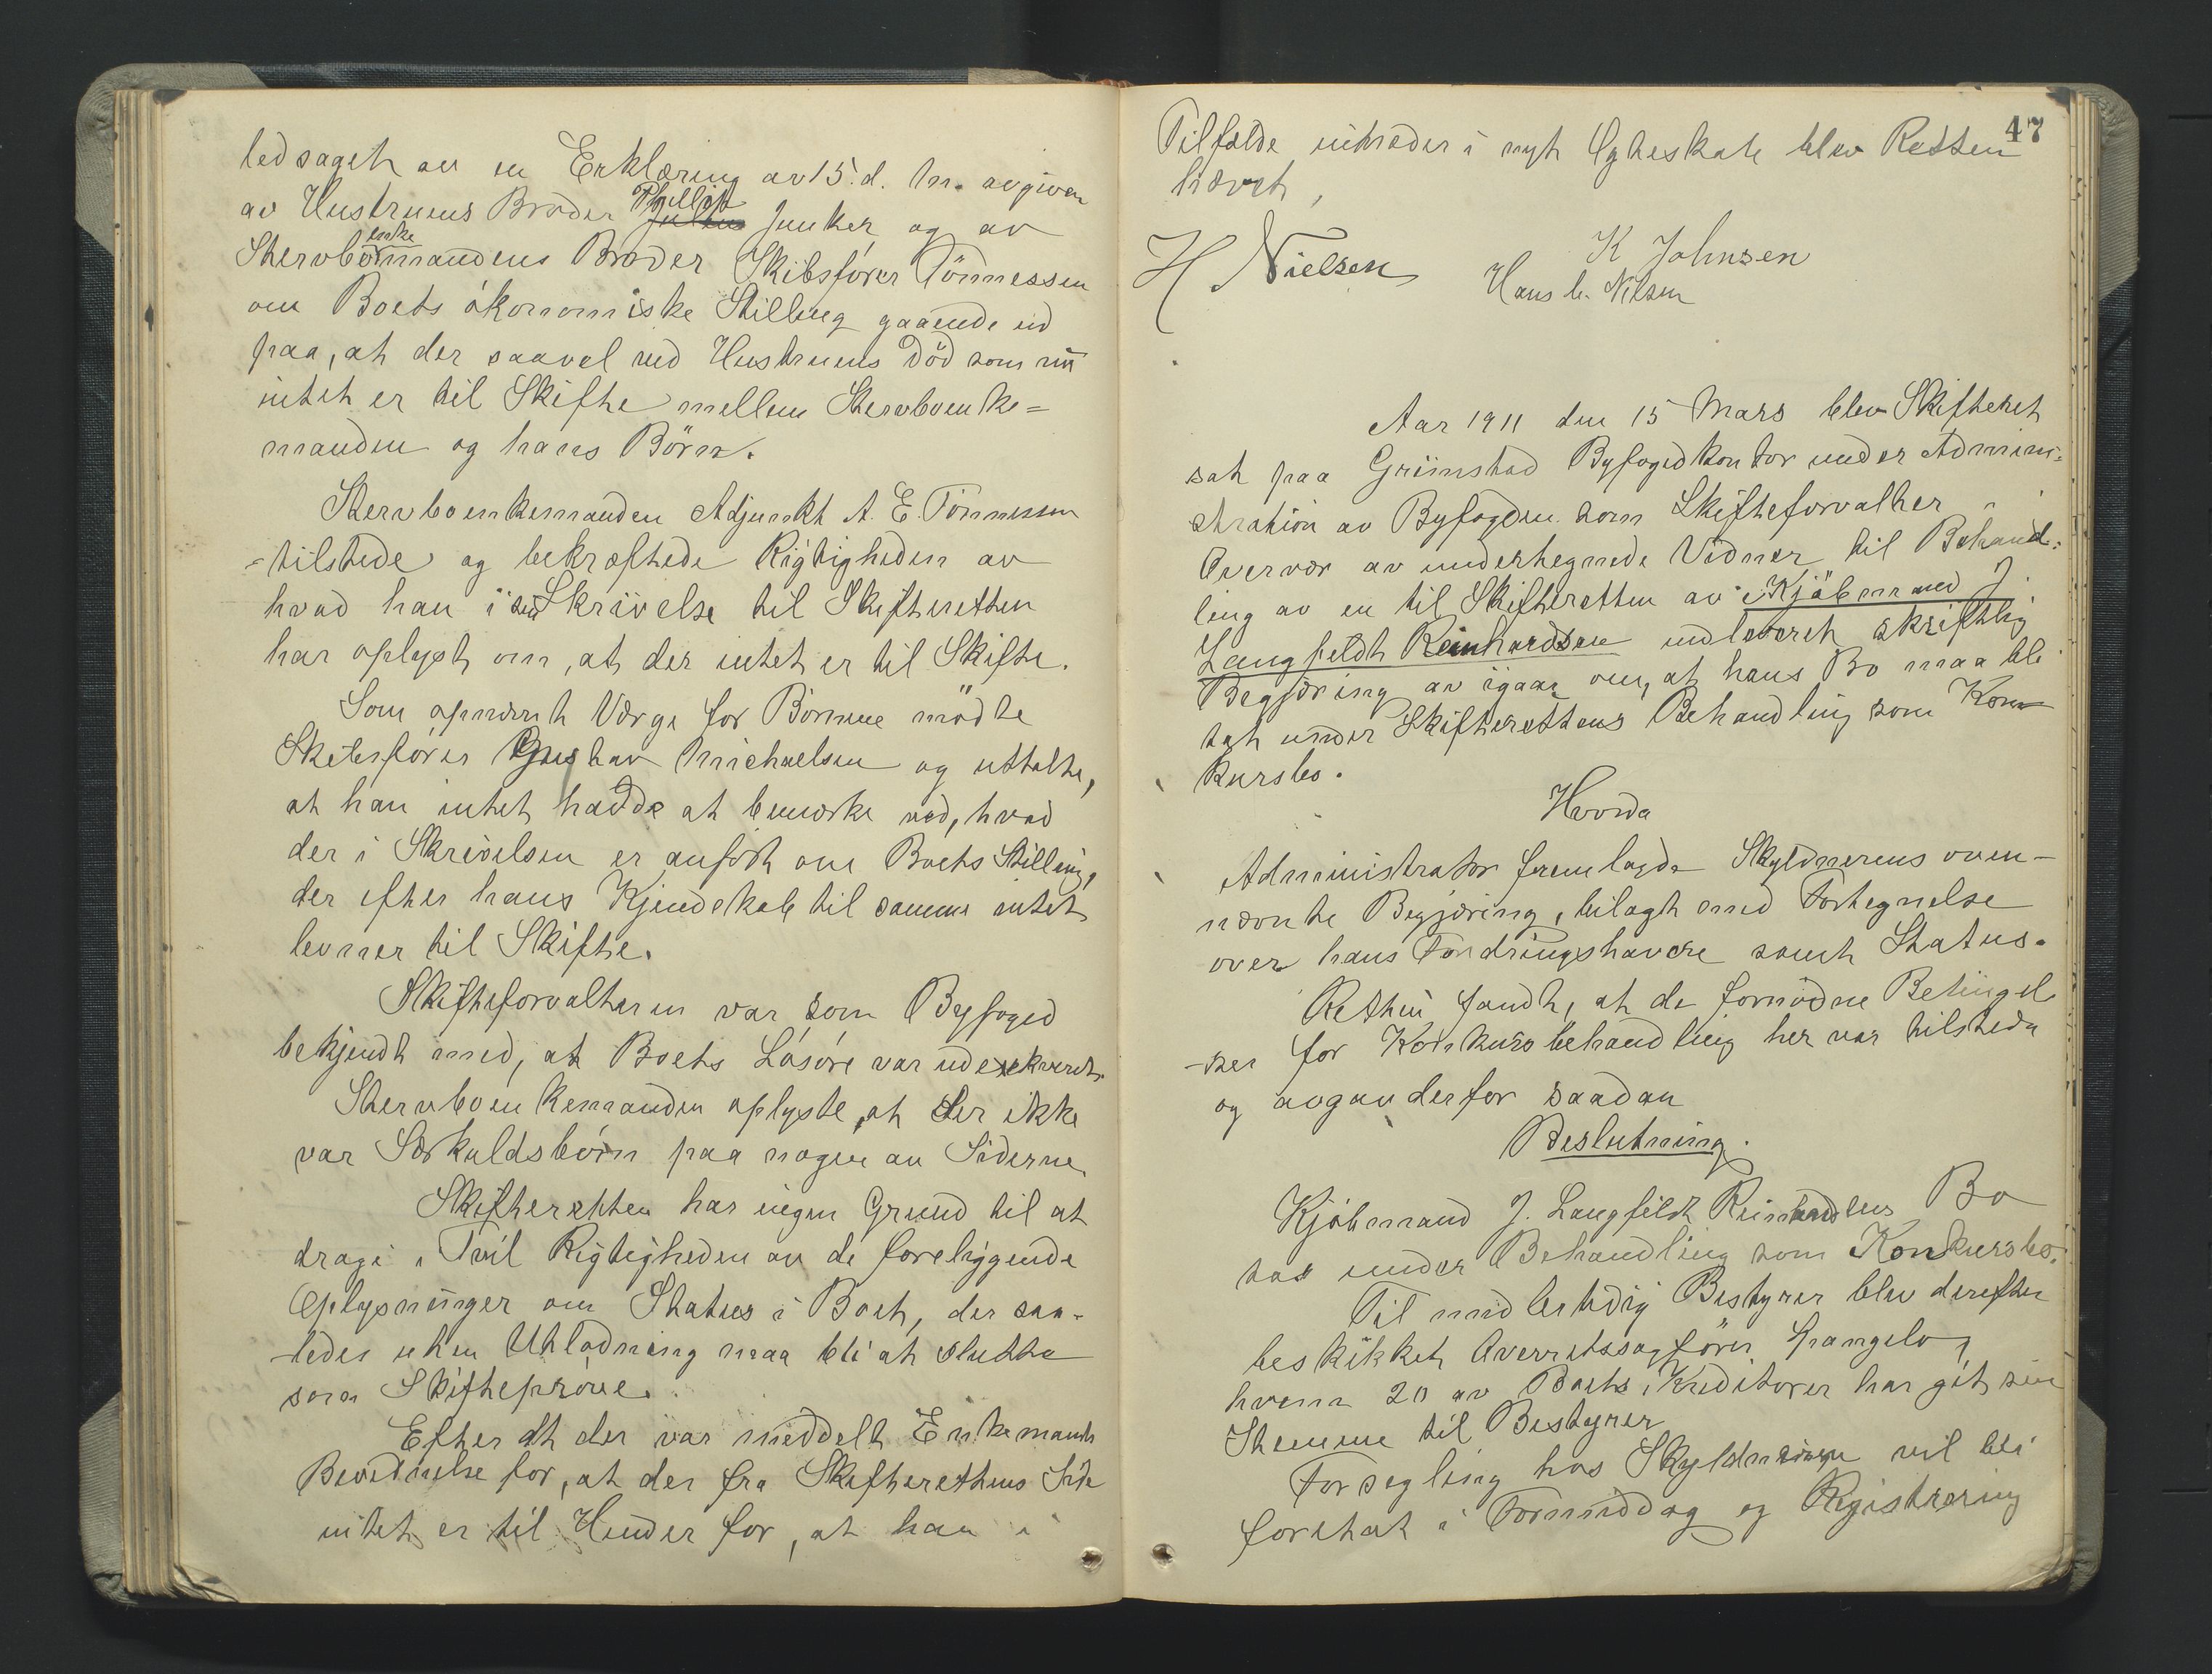 ledsaget av en Erklæring av 15. d. M. avgiven
av Hustruens Broder Junker og av
Stervboenkemandens Broder Skibsfører Tönnessen
om Boets økonomiske Stilling gaaende ud
paa, at der saavel ved Hustruens Död som nu
intet er til Skifte mellem Stervboenke=
manden og hans Börn.
Stervboenkemanden Adjunkt A. E. Tönnessen
=tilstede og bekræftede Rigtigheden av
hvad han i sin Skrivelse til Skifteretten
har oplyst om, at der intet er til Skifte.
Som opnævnt Værge for Börnene mödte
Skibsfører Gustav Michaelsen og uttalte,
at han intet hadde at bemærke ved, hvad
der i Skrivelsen er anført om Boets Stilling,
der efter hans Kjendskab til samme intet
levner til Skifte.
Skifteforvalteren var som Byfoged
bekjendt med, at Boets Løsøre var udexekveret.
Stervboenkemanden oplyste, at der ikke
var Særkuldsbörn paa nogen av Siderne
Skifteretten har ingen Grund til at
drage i Tvil Rigtigheden av de foreliggende
Oplysninger om Status i Boet, der saa-
-ledes uten Utlodning maa bli at slutte
som Skifteprøve.
Efter at der var meddelt Enkemanden
Bevidnelse for, at der fra Skifterettens Side
intet er til Hinder for, at han i
47
Tilfælde indtræder i nyt Egteskab blev Retten
hævet,
H Nielsen
K Johnsen
Hans C. Nilsen
Aar 1911 den 15 Mars blev Skifteret
sat paa Grimstad Byfogedkontor under Admini-
stration av Byfogden som Skifteforvalter i
Overvær av undertegnede Vidner til Behand-
ling av en til Skifteretten av Kjöbmand J.
Langfeldt Reinhardsen indleveret skriftlig
Begjæring av igaar om, at hans Bo maa bli
tat under Skifterettens Behandling som Kon-
kursbo.
Hvorda
Administrator fremlagde Skyldnerens oven-
nævnte Begjæring, bilagt med Fortegnelse
over hans Fordringshavere samt Status.
Retten fandt, at de fornødne Betingel-
-ser for Konkursbehandling her var tilstede
og avgav derfor saadan
Beslutning.
Kjöbmand J. Langfeldt Reinhardsens Bo
tas under Behandling som Konkursbo.
Til midlertidig Bestyrer blev derefter
beskikket Overretssagfører
hvem 20 av Boets Kreditorer har git sin
Stemme til Bestyrer
Forsegling hos Skyldneren vil bli
foretat i Formiddag og Registrering